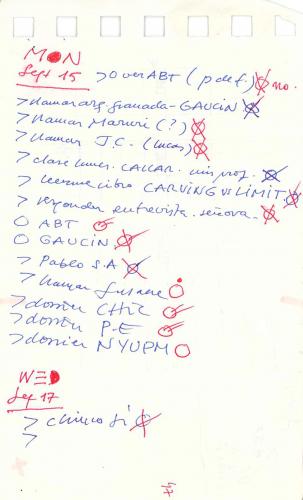 MON
Sept 15 > Over ABT (pdef.) no.
> llamar arq. granada - GAUCIN
> llamar Maruri (?)
> llamar J.C. (lucas)
> clase
> CARVING vs LIMIT
> responder entrevista señora.
O ABT
O GAUCIN.
> Pablo S.A
> llamar
> dossier CHIC
> dossier P-E
> dossier NYUPM
WED
Sep 17
> chino si
>